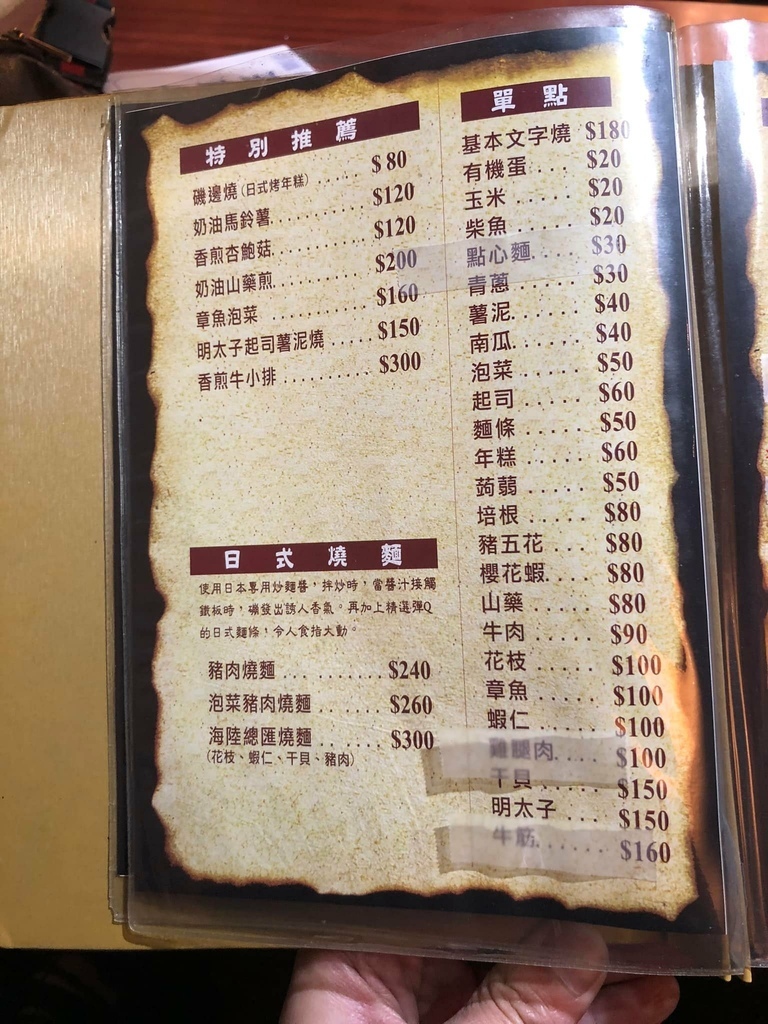 特別推薦
磯邊燒(日式烤年糕) $80
奶油馬鈴薯 $120
香煎杏鮑菇 $120
奶油山藥煎 $200
章魚泡菜 $160
明太子起司薯泥燒 $150
香煎牛小排 $300
日式燒麵
使用日本專用炒麵醬,拌炒時,當醬汁接觸
鐵板時,礦發出誘人香氣。再加上精選彈Q
的日式麵條,令人食指大動。
豬肉燒麵 $240
泡菜豬肉燒麵 $260
海陸總匯燒麵 $300
(花枝、蝦仁、干貝、豬肉)
單點
基本文字燒 $180
有機蛋 $20
玉米 $20
柴魚 $20
點心麵 $30
青蔥 $30
薯泥 $40
南瓜 $40
泡菜 $50
起司 $60
麵條 $50
年糕 $60
蒟蒻 $50
培根 $80
豬五花 $80
櫻花蝦 $80
山藥 $80
牛肉 $90
花枝 $100
章魚 $100
蝦仁 $100
雞腿肉 $100
干貝 $150
明太子 $150
牛筋 $160